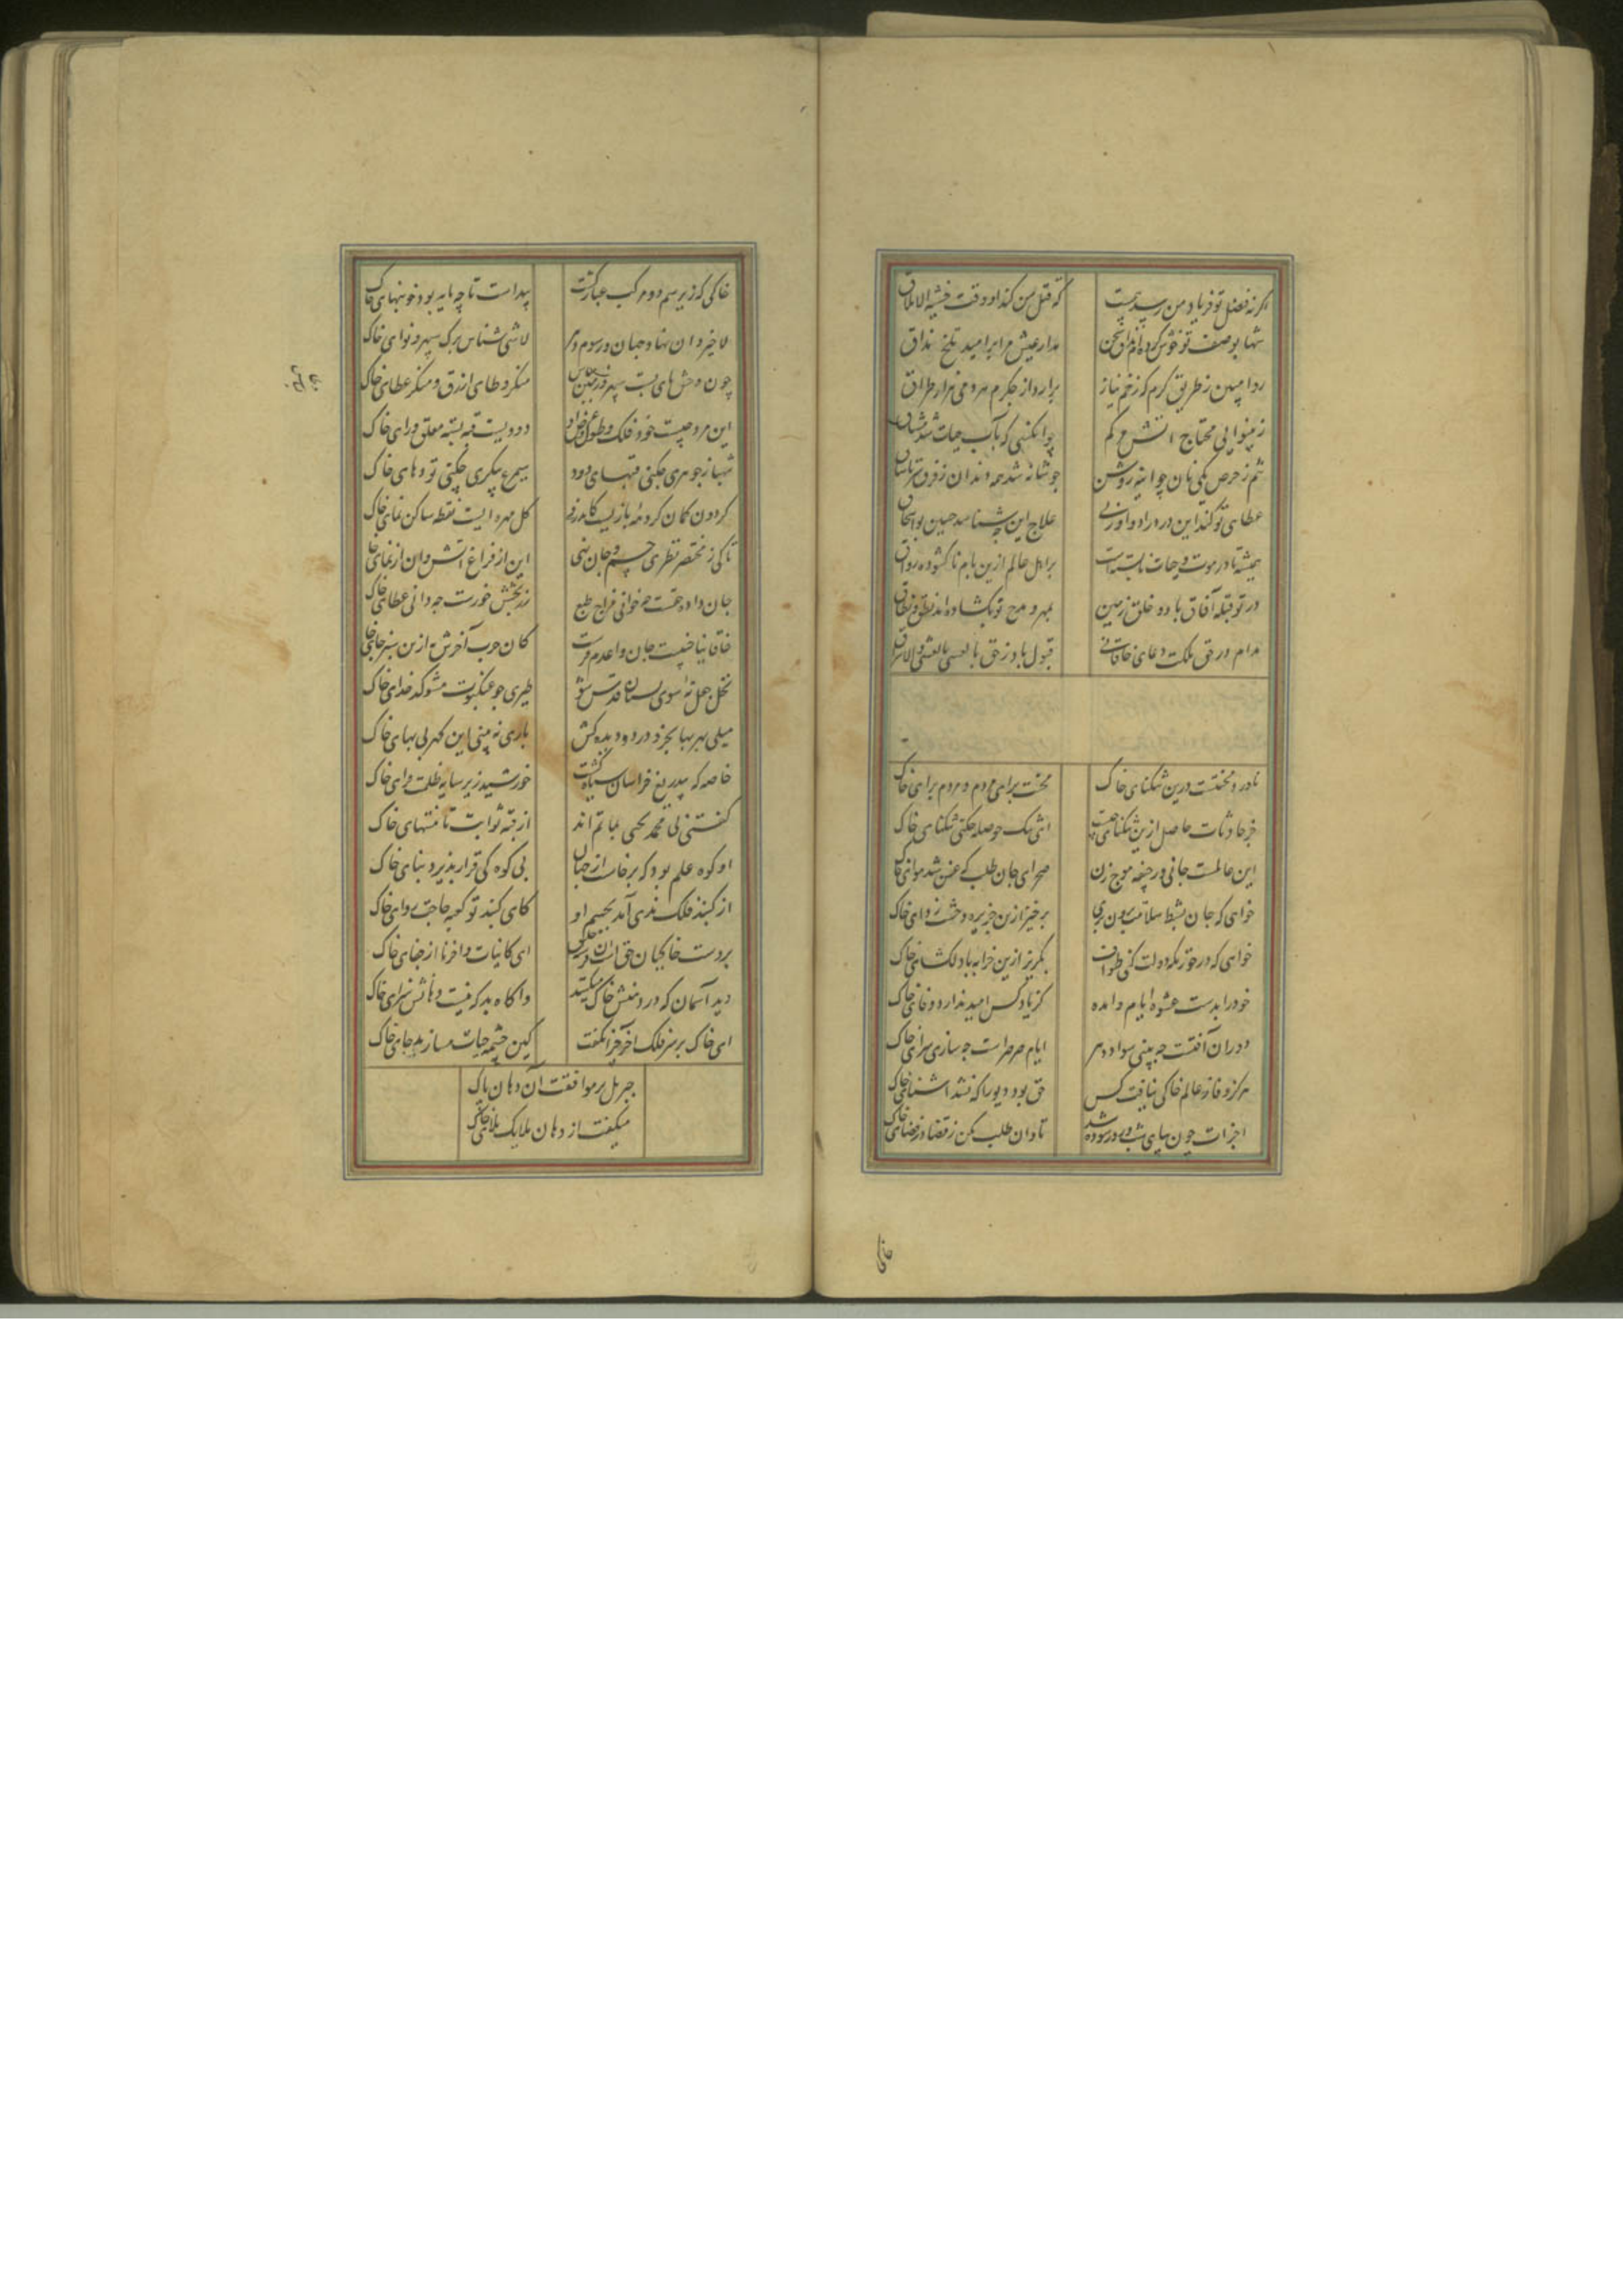 اگرنه فضل تو فریاد من رسد بیمست که قتل من کند او وقت خشیة الاملاق
شها بوصف تو خوش کرده‌ام مذاق سخن مدار عیش مرا برامید تلخ مذاق
روا مبین ز طریق کرم که زخم نیاز برارد از جکرم هر دمی هزار طراق
ز بینوایی محتاج
شم ز حرص یکی نان چو آینه روشن چو شانه شد همه دندان ز فرق تا
عطای تو کند این درد را دوا ورنی علاج این چه شناسد حنین بو اسحاق
همیشه تا در موت و حیات نابسته است براهل عالم ازین بام ناکشوده رواق
در تو قبله آفاق باد و خلق زمین بمهر و مدح تو بکشاده‌اند نطق و نطاق
مدام در حق ملکت دعای خاقانی قبول باد ز حق بالعشی والاشراق
نادر و محنتست درین تنکنای خاک محنت برای مردم و مردم برای خاک
جز حادثات حاصل ازین تنکنای چیست ای تنک حوصله چکنی تنکنای خاک
این عالمست جانی و در جیفه موج زن صحرای جان طلب که عفن شد هوای خاک
خواهی که جان بشط سلامت برون بری برخیز ازین جزیره وحشت زدای خاک
خواهی که در خورنکه دولت کنی طواف بکریز ازین خرابه نادلکشای خاک
خود را بدست عشوه ایام وامده کز باد کس امید ندارد وفای خاک
دوران آفتست چه بینی سواد دهر ایام صرصراست چه سازی سرای خاک
هرکز وفا ز عالم خاکی نیافت کس حق بود دیو را که نشد اشنای خاک
اجزات چون بپای شب و روز سوده شد تاوان طلب مکن ز قضا در فضای خاک
خاکی که زیر سم دو مرکب غبار کشت پیداست تا چه مایه بود خونبهای خاک
لاخیر دان نهاد جهان و رسوم دهر لاشی شناس برک سپهر و نوای خاک
چون وحش پای بست سپهر و زمین مباش منکر وطای ازرق و منکر عطای خاک
این مرد چیست خود فلک و طول و عرض او دودیست قبه بسته معلق ورای خاک
شهباز جوهری چکنی قبهای دود سیمرغ پیکری چکنی تودهای خاک
کردون کمان کروهه بازیست کاندرو کل مهره ایست نقطه ساکن نمای خاک
تا کی ز مختصر نظری جسم و جان نهی این از فراغ آتش و ان از نمای خاک
جان داده حقست چه خوانی مزاج طبع زر بخشش خورست چه دانی عطای خاک
خاقانیا جنیبت جان وا عدم فرست کان چرب آخرش ازین سبز جای خاک
نحل جعل نه سوی بستان قدس شو طیری چو عنکبوت مشو کدخدای خاک
میلی بهر بها بخر و در دو دیده کش باری نه بینی این کهر بی بهای خاک
خاصه که بیدریغ خراسان سیاه کشت خورشید زیر سایه ظلمت فزای خاک
کفتی پی محمد یحیی بماتم‌اند از قبه ثوابت تا منتهای خاک
او کوه علم بود که برخاست از جهان بی کوه کی قرار پذیرد بنای خاک
از کنبد فلک ندی آمد بجسم او کای کنبد تو کعبه حاجت روای خاک
بر دست خاکیان ای کاینات وا حزنا از جفای خاک
دید آسمان که در دهنش خاک میکنند وآکاه بد که نیست دهانش سزای خاک
ای خاک بر سر فلک آخر چرا نکفت کین چشمه حیات مسازید جای خاک
جبریل بر موافقت آن دهان پاک
میکفت از دهان ملایک صلای خاک
خاکی